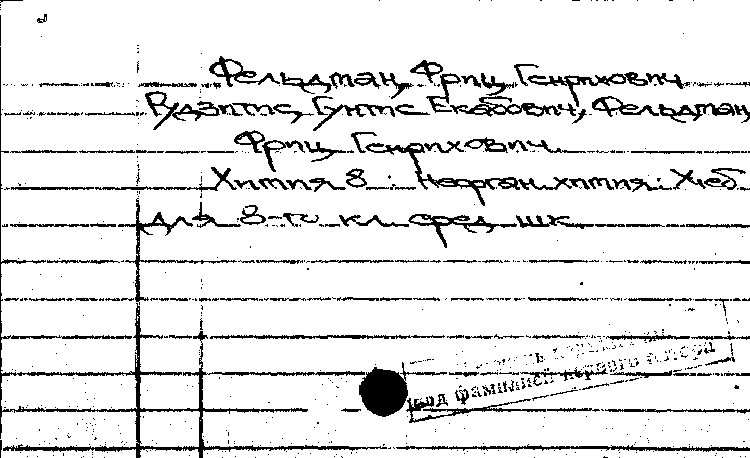 Фельдман, Фриц Генрихович
Рудзитис, Гунтис Екабович, Фельдман,
Фриц Генрихович.
Химия 8 : Неорган. химия: Учеб.
для 8-го кл. сред. шк.
под фамилией первого автора